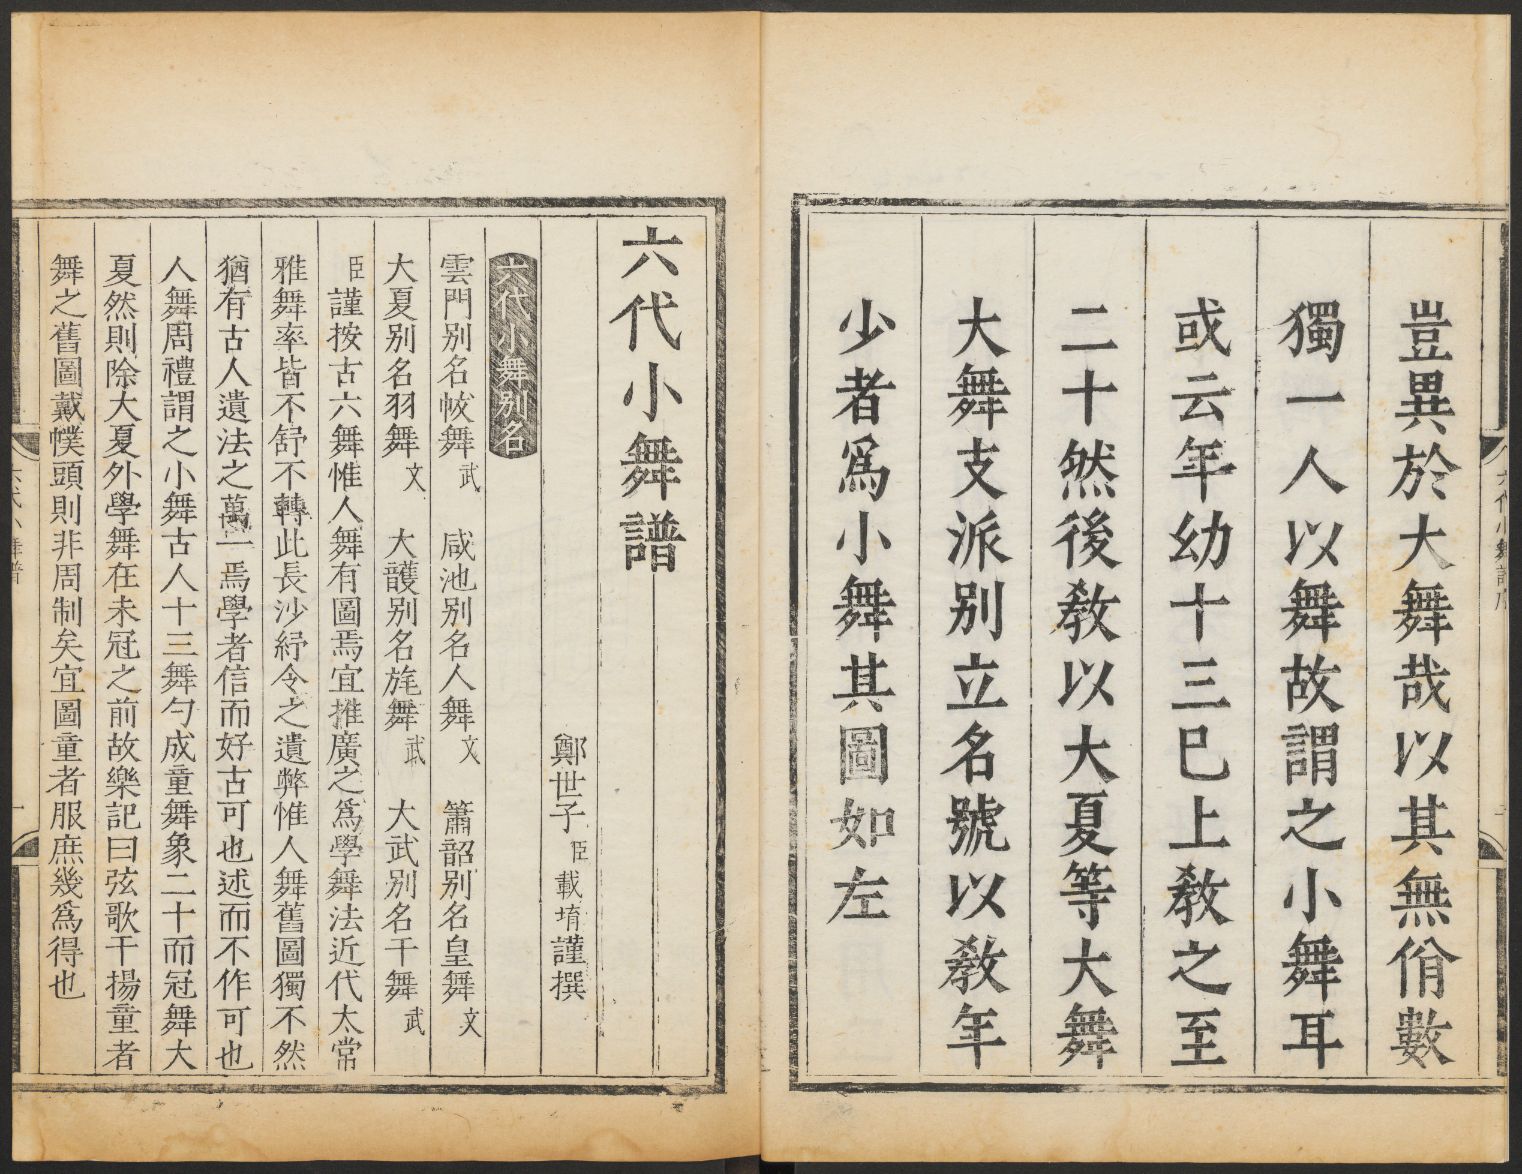 豈異於大舞哉以其無佾數
獨一人以舞故謂之小舞耳
或云年幼十三巳上教之至
二十然後教以大夏等大舞
大舞支派别立名號以教年
少者爲小舞其圖如左
六代小舞譜
鄭世子臣載堉謹撰
六代小舞别名
雲門别名帗舞武 咸池别名人舞文 簫韶别名皇舞文
大夏别名羽舞文 大頀别名旄舞武 大武别名干舞武
臣謹按古六舞惟人舞有圖焉宜推廣之爲學舞法近代太常
雅舞率皆不舒不轉此長沙紓令之遺弊惟人舞舊圖獨不然
猶有古人遺法之萬一焉學者信而好古可也述而不作可也
人舞周禮謂之小舞古人十三舞勺成童舞象二十而冠舞大
夏然則除大夏外學舞在未冠之前故樂記曰弦歌干揚童者
舞之舊圖戴幞頭則非周制矣宜圖童者服庶幾爲得也
六代小舞譜